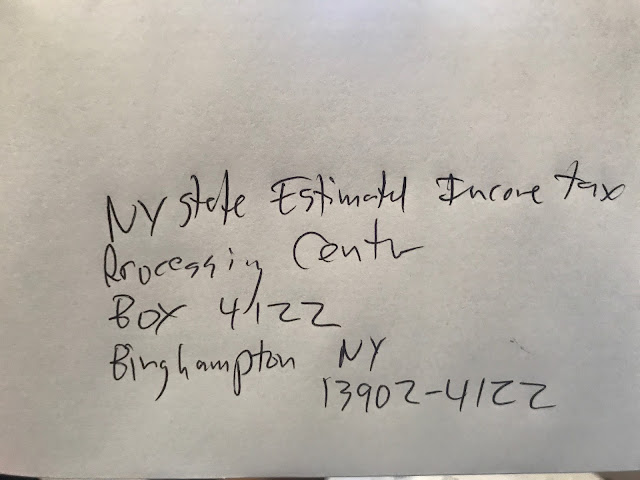 NY State Estimated Income tax
Processing Center
Box 4122
Binghampton NY
13902-4122